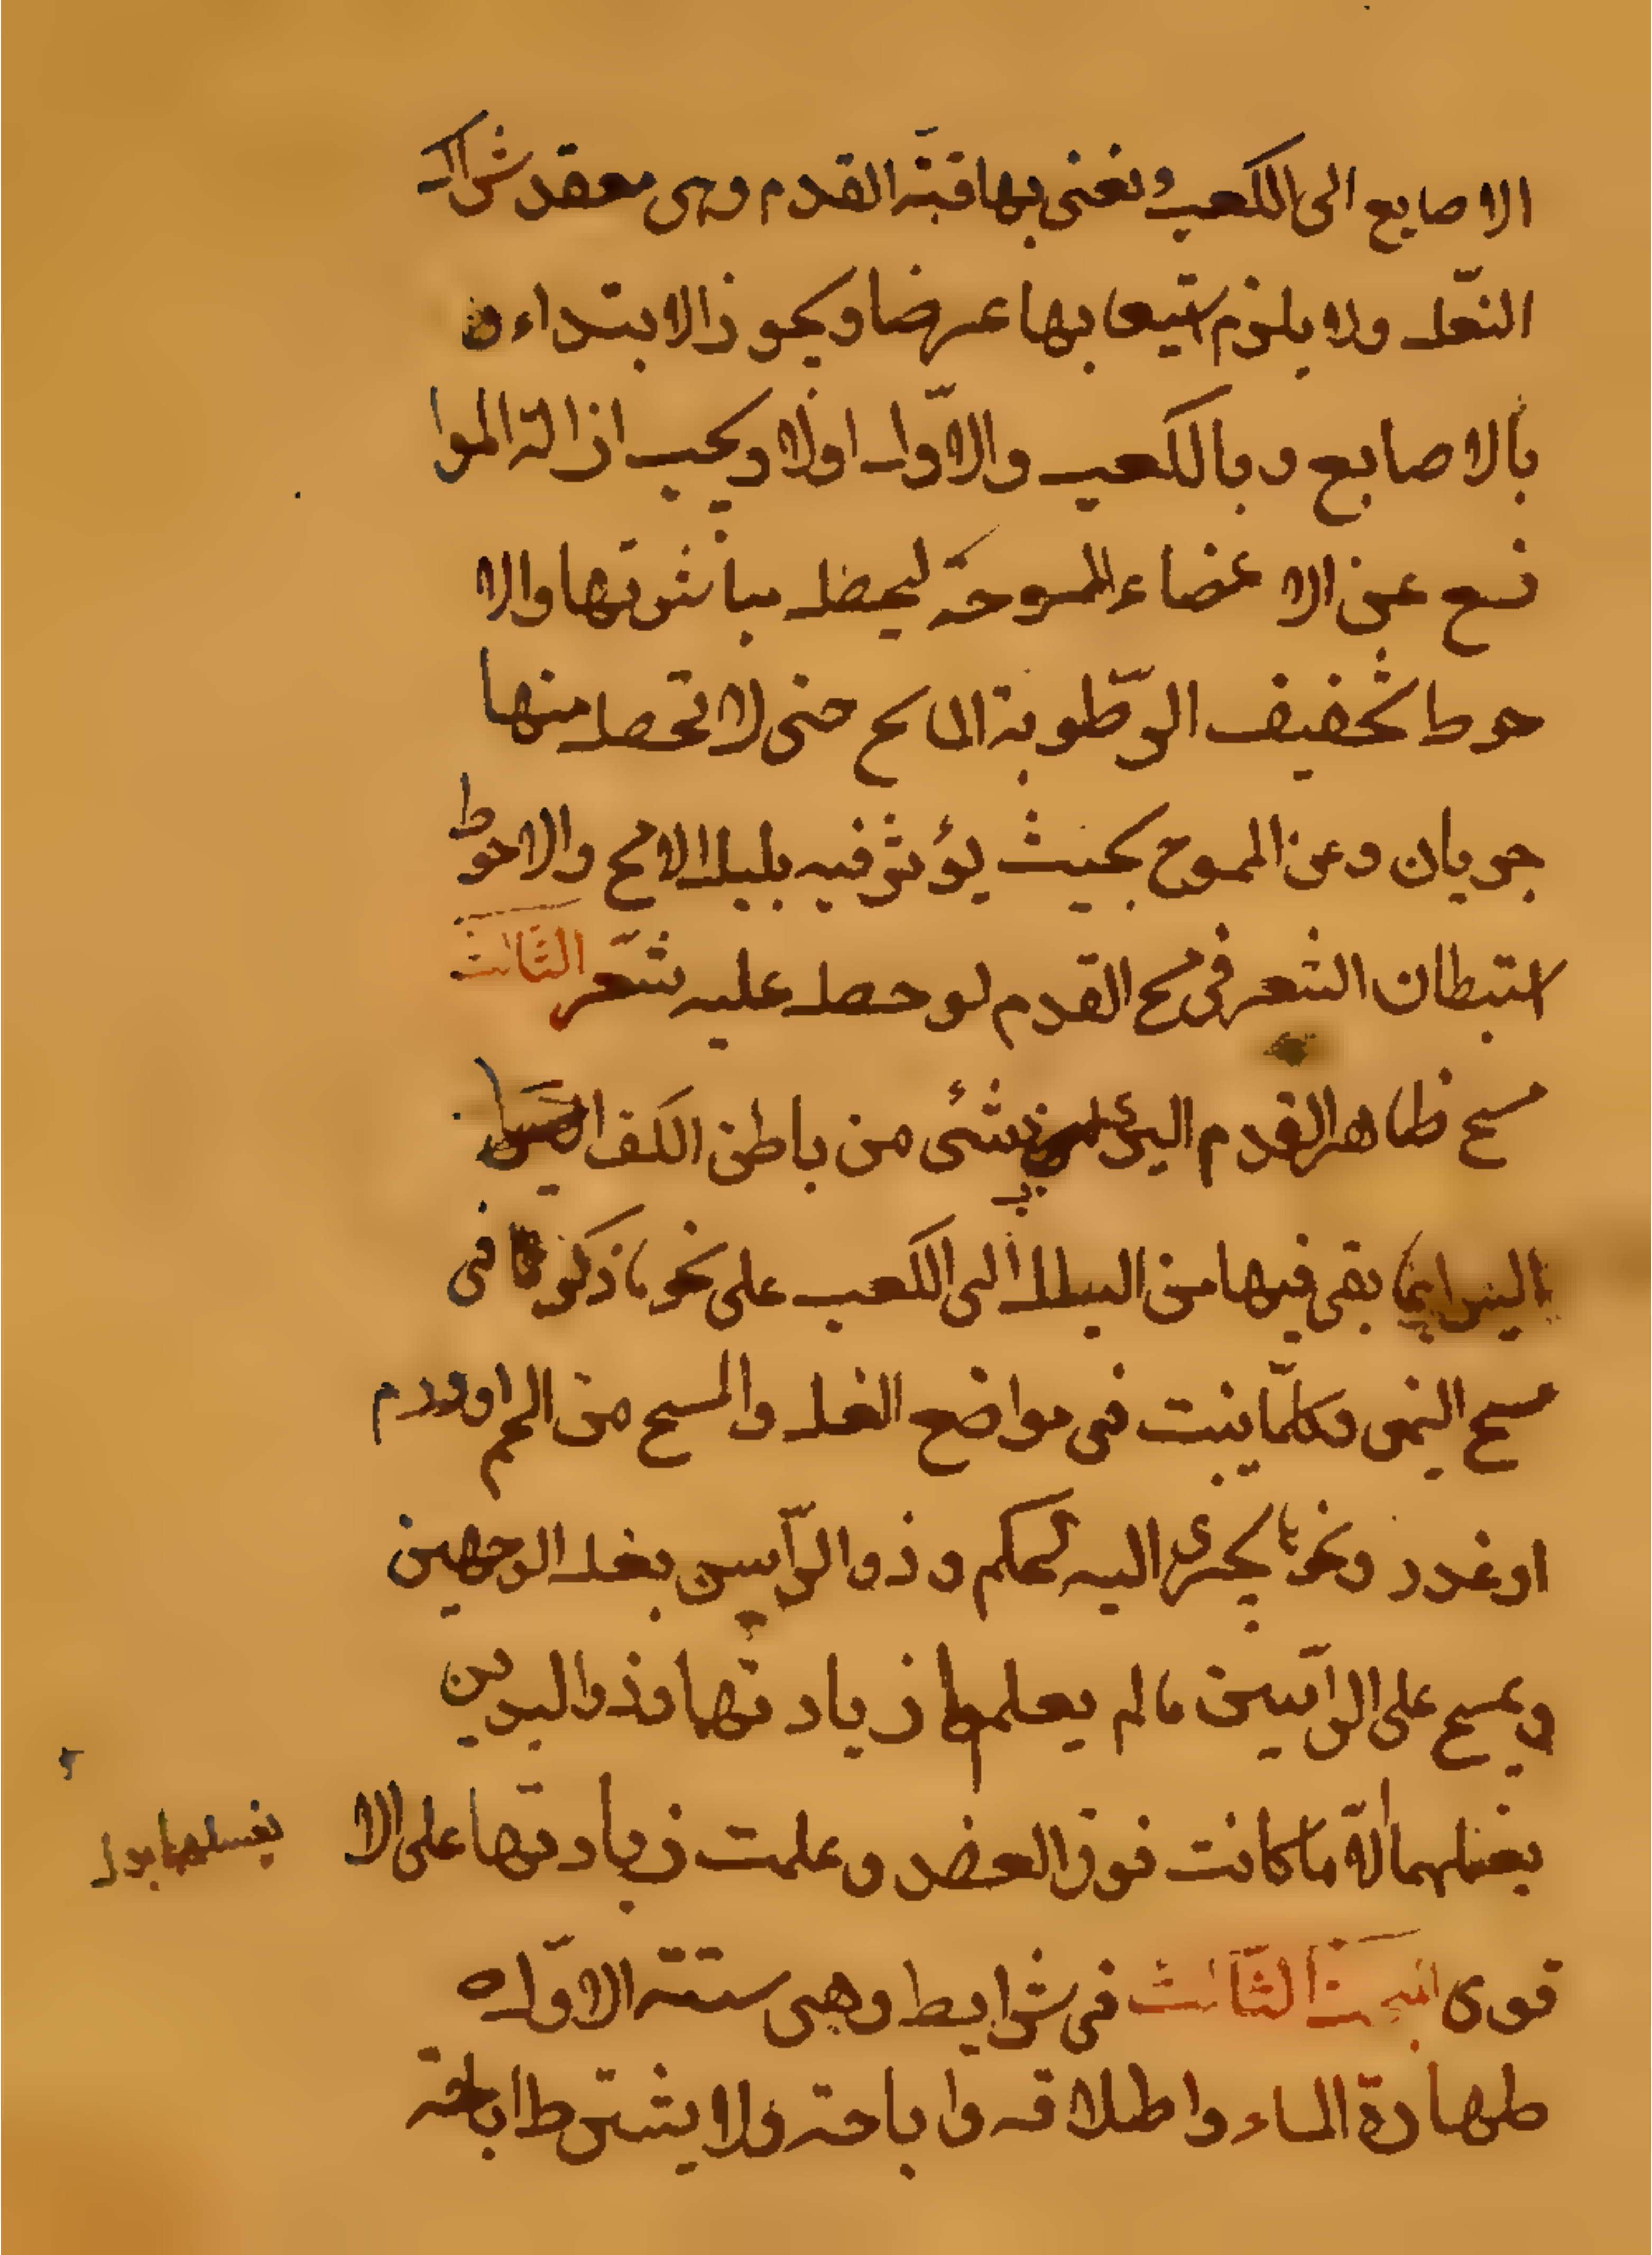 الاصابع الى الكعب ونعنى بها قبّة القدم وهى معقد شراك
النّعل ولا يلزم استيعابها عرضا ويجوز الابتداء
بالاصابع وبالكعب والاوّل اولا ويجب ازالة الموا
نع عن الاعضاء الممسوحة ليحصل مباشرتها والا
حوط تخفيف الرّطوبة الماسح حتى لا تحصل منها
جريان وعن الممسوح بحيث يؤثر فيه بلل الماسح والاحوط
استبطان الشعر فى مسح القدم لو حصل عليه شعر الثّالث
مسح ظاهر القدم اليسرى بشئى من باطن الكف
اليسرى بما بقى فيها من البلل الى الكعب على نحو ما ذكرنا فى
مسح اليمنى وكلّما ينبت فى مواضع الغسل والمسح من الحم او ورم
او غدد ونحوها يجرى اليه الحكم وذو الرّأسين يغسل الوجهين
ويمسح على الرأسين ما لم يعلم زيادتها وذو اليدين
يغسلهما الا ما كانت فوق العضد وعلمت زيادتها على الا
يغسلها بدل
قوى المبحث الثّالث فى شرايط وهى ستة الاوّل
طهارة الماء واطلاقه واباحته ولا يشترط اباحة